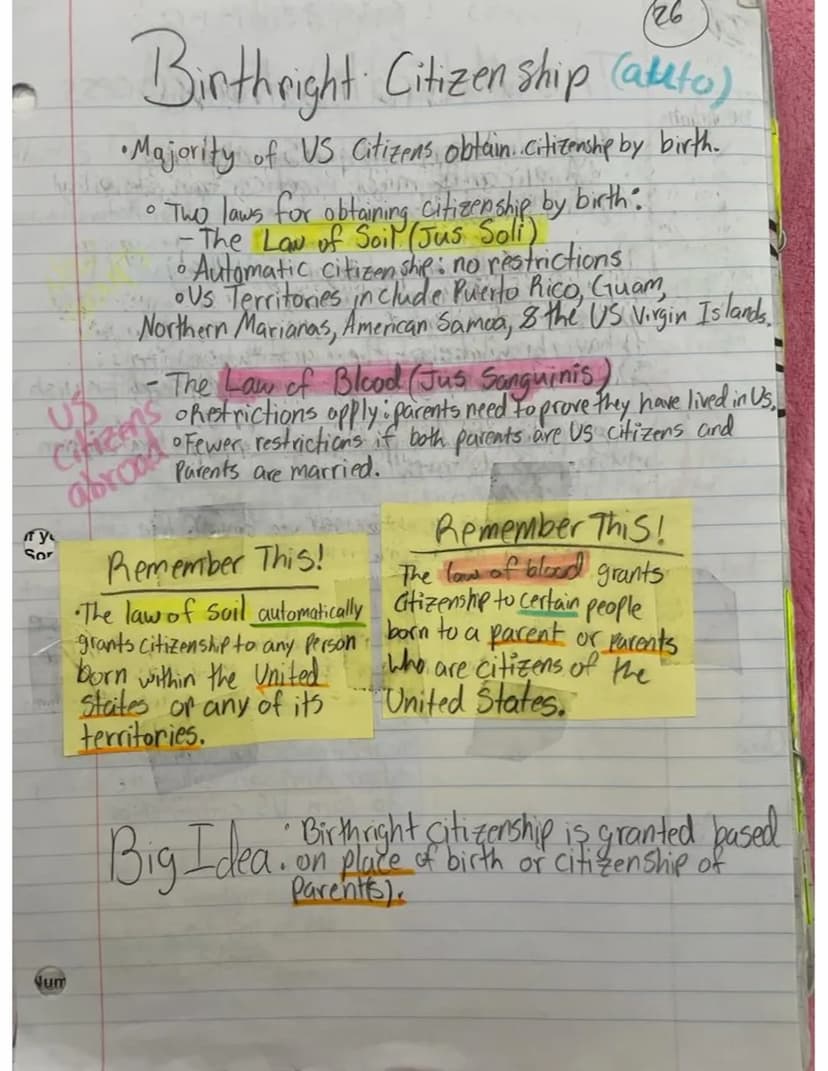 26
Birthright Citizenship (auto)
• Majority of US Citizens obtain citizenship by birth.
◦ Two laws for obtaining citizenship by birth:
- The Law of Soil (Jus Soli)
◦ Automatic citizenship: no restrictions
◦ US Territories include Puerto Rico, Guam,
Northern Marianas, American Samoa, & the US Virgin Islands.
- The Law of Blood (Jus Sanguinis)
◦ Restrictions apply: parents need to prove they have lived in US.
◦ Fewer restrictions if both parents are US citizens and
Parents are married.
US
Citizens
abroad
Remember This!
• The law of soil automatically
grants citizenship to any person
born within the United
States or any of its
territories.
Remember This!
The law of blood grants
Citizenship to certain people
born to a parent or parents
who are citizens of the
United States.
Big Idea • Birthright citizenship is granted based
• on place of birth or citizenship of
Parent(s).